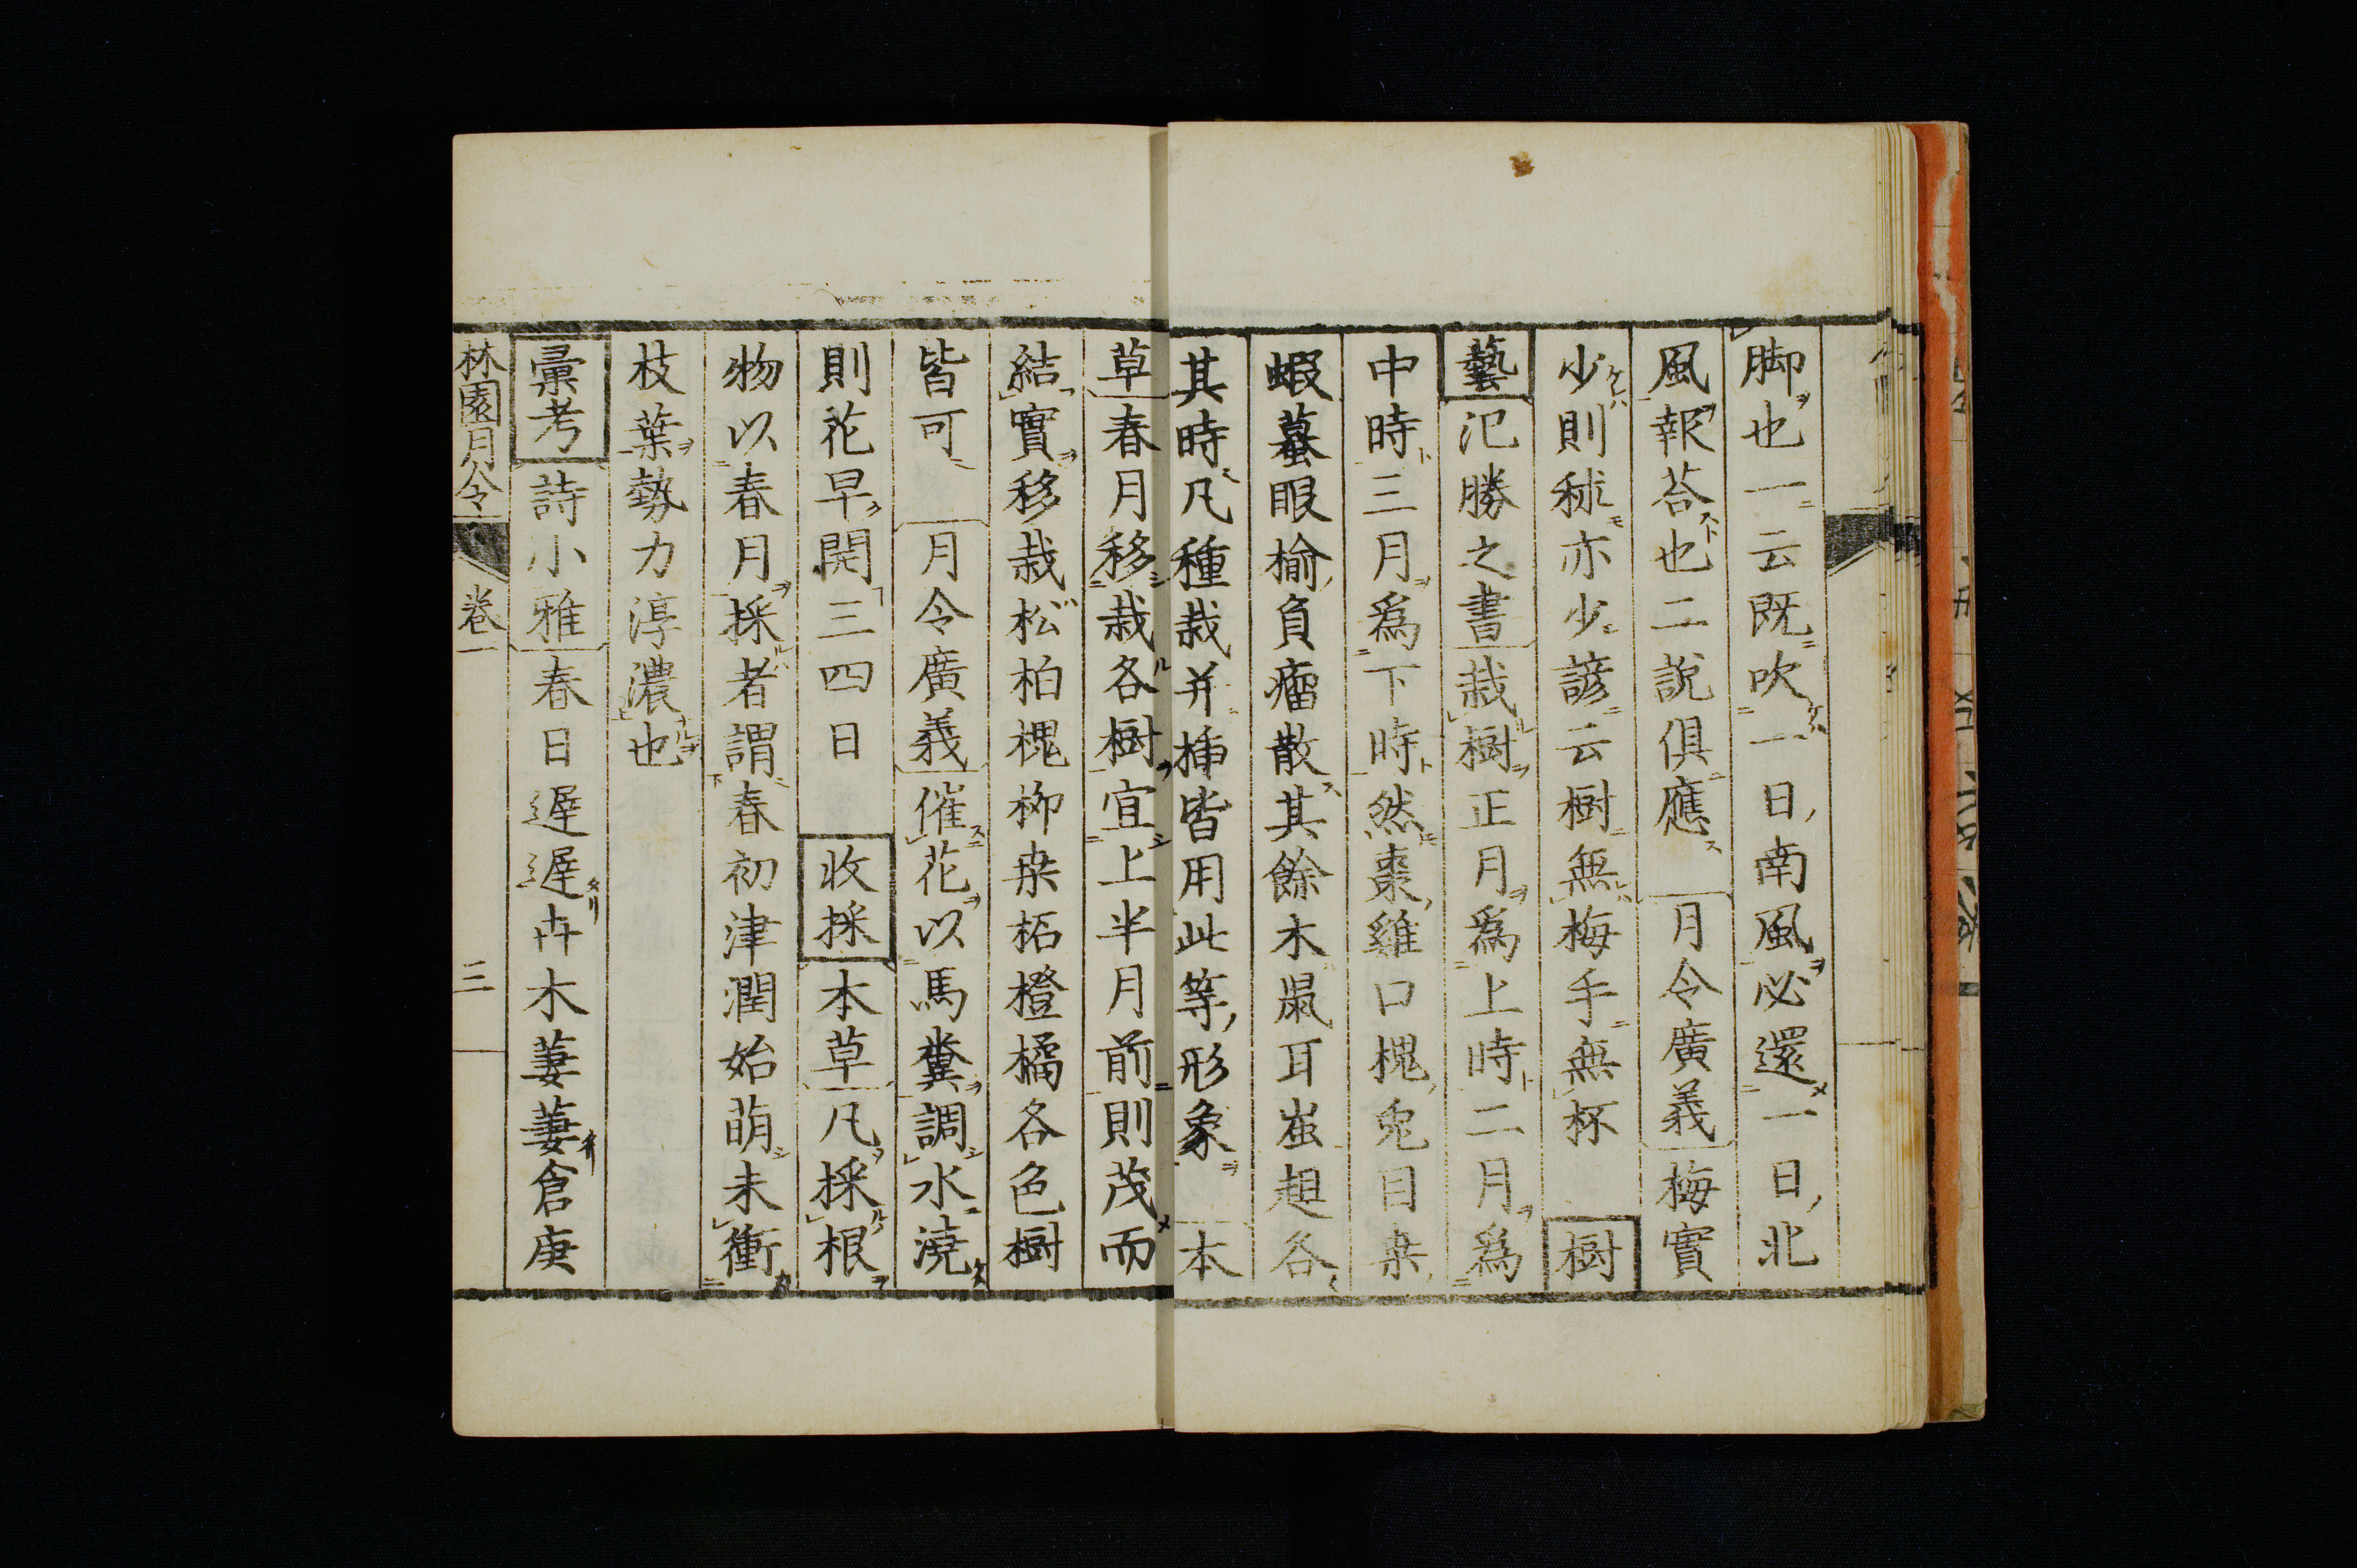 脚也一云既吹一日南風必還一日北
風報荅也二說俱應月令廣義梅實
少則秫亦少諺云樹無梅手無杯樹
藝氾勝之書栽樹正月爲上時二月爲
中時三月爲下時然棗雞口槐兎目桒
蝦蟇眼榆負瘤散其餘木鼠耳䖟翅各
其時凡種栽并挿皆用此等形象本
草春月移栽各樹宜上半月前則茂而
結實移栽松柏槐柳桒柘橙橘各色樹
皆可月令廣義催花以馬糞調水澆
則花早開三四日收採本草凡採根
物以春月採者謂春初津潤始萌未衝
枝葉勢力淳濃也
彙考詩小雅春日遲遲卉木萋萋倉庚
林園月令卷一三